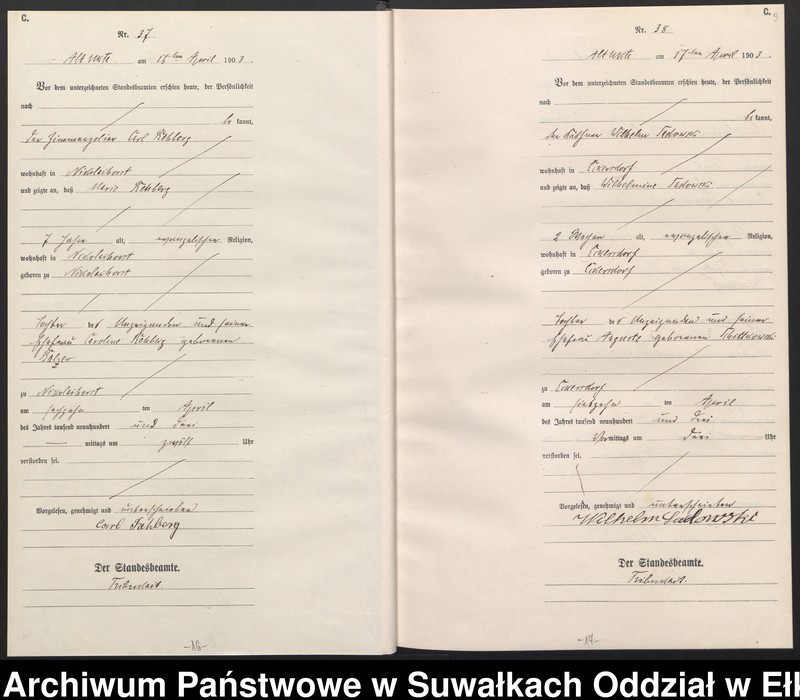 C.
Nr. 37
Alt Ukta am 18ten April 1903.
Vor dem unterzeichneten Standesbeamten erschien heute, der Persönlichkeit
nach
be kannt,
der Carl
wohnhaft in Nikolaihorst
und zeigte an, daß Marie
7 Jahre alt, evangelischer Religion,
wohnhaft in Nikolaihorst
geboren zu Nikolaihorst
Tochter des Anzeigenden und seiner
Ehefrau Caroline geborenen
zu Nikolaihorst
am ten April
des Jahres tausend neunhundert und drei
mittags um zwölf Uhr
verstorben sei.
Vorgelesen, genehmigt und unterschrieben
Carl
Der Standesbeamte.
-16-
C.
9
Nr. 38
Alt Ukta am 17ten April 1903.
Vor dem unterzeichneten Standesbeamten erschien heute, der Persönlichkeit
nach
be kannt,
der Käthner Wilhelm
wohnhaft in Eckersdorf
und zeigte an, daß Wilhelmine
2 Wochen alt, evangelischer Religion,
wohnhaft in Eckersdorf
geboren zu Eckersdorf
Tochter des Anzeigenden und seiner
Ehefrau Auguste geborenen
zu Eckersdorf
am siebzehn ten April
des Jahres tausend neunhundert und drei
Vormittags um drei Uhr
verstorben sei.
Vorgelesen, genehmigt und unterschrieben
Wilhelm Sadowski
Der Standesbeamte.
-17-
Archiwum Państwowe w Suwałkach Oddział w Eł